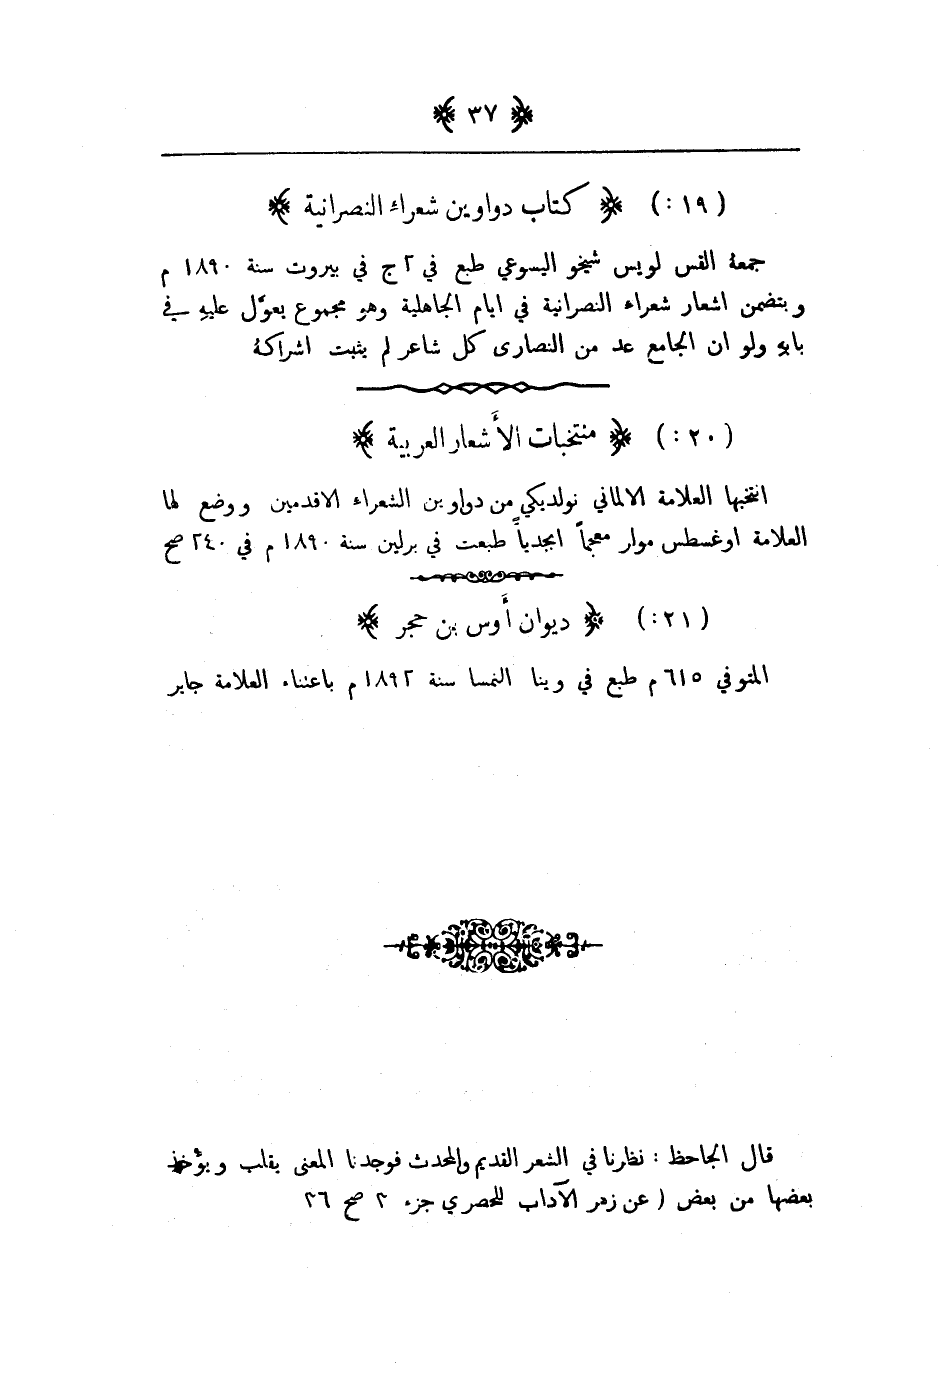 ﴿ ٣٧ ﴾
(١٩:) ﴿ كتاب دواوين شعراء النصرانية ﴾
جمعهُ القس لويس شيخو اليسوعي طبع في ٢ ج في بيروت سنة ١٨٩٠ م
ويتضمن اشعار شعراء النصرانية في ايام الجاهلية وهو مجموع يعوَّل عليهِ في
بابهِ ولو ان الجامع عد من النصارى كل شاعر لم يثبت اشراكهُ
(٢٠:) ﴿ منتخبات الأَشعار العربية ﴾
انتخبها العلامة الالماني نولديكي من دواوين الشعراء الاقدمين ووضع لها
العلامة اوغسطس مولر معجماً ابجدياً طبعت في برلين سنة ١٨٩٠ م في ٢٤٠ صح
(٢١:) ﴿ ديوان أَوس بن حجر ﴾
المتوفي ٦١٥ م طبع في وينا النمسا سنة ١٨٩٢ م باعتناء العلامة جاير
قال الجاحظ : نظرنا في الشعر القديم والمحدث فوجدنا المعنى يقلب ويؤخذ
بعضها من بعض ( عن زهر الآداب للحصري جزء ٢ صح ٢٦